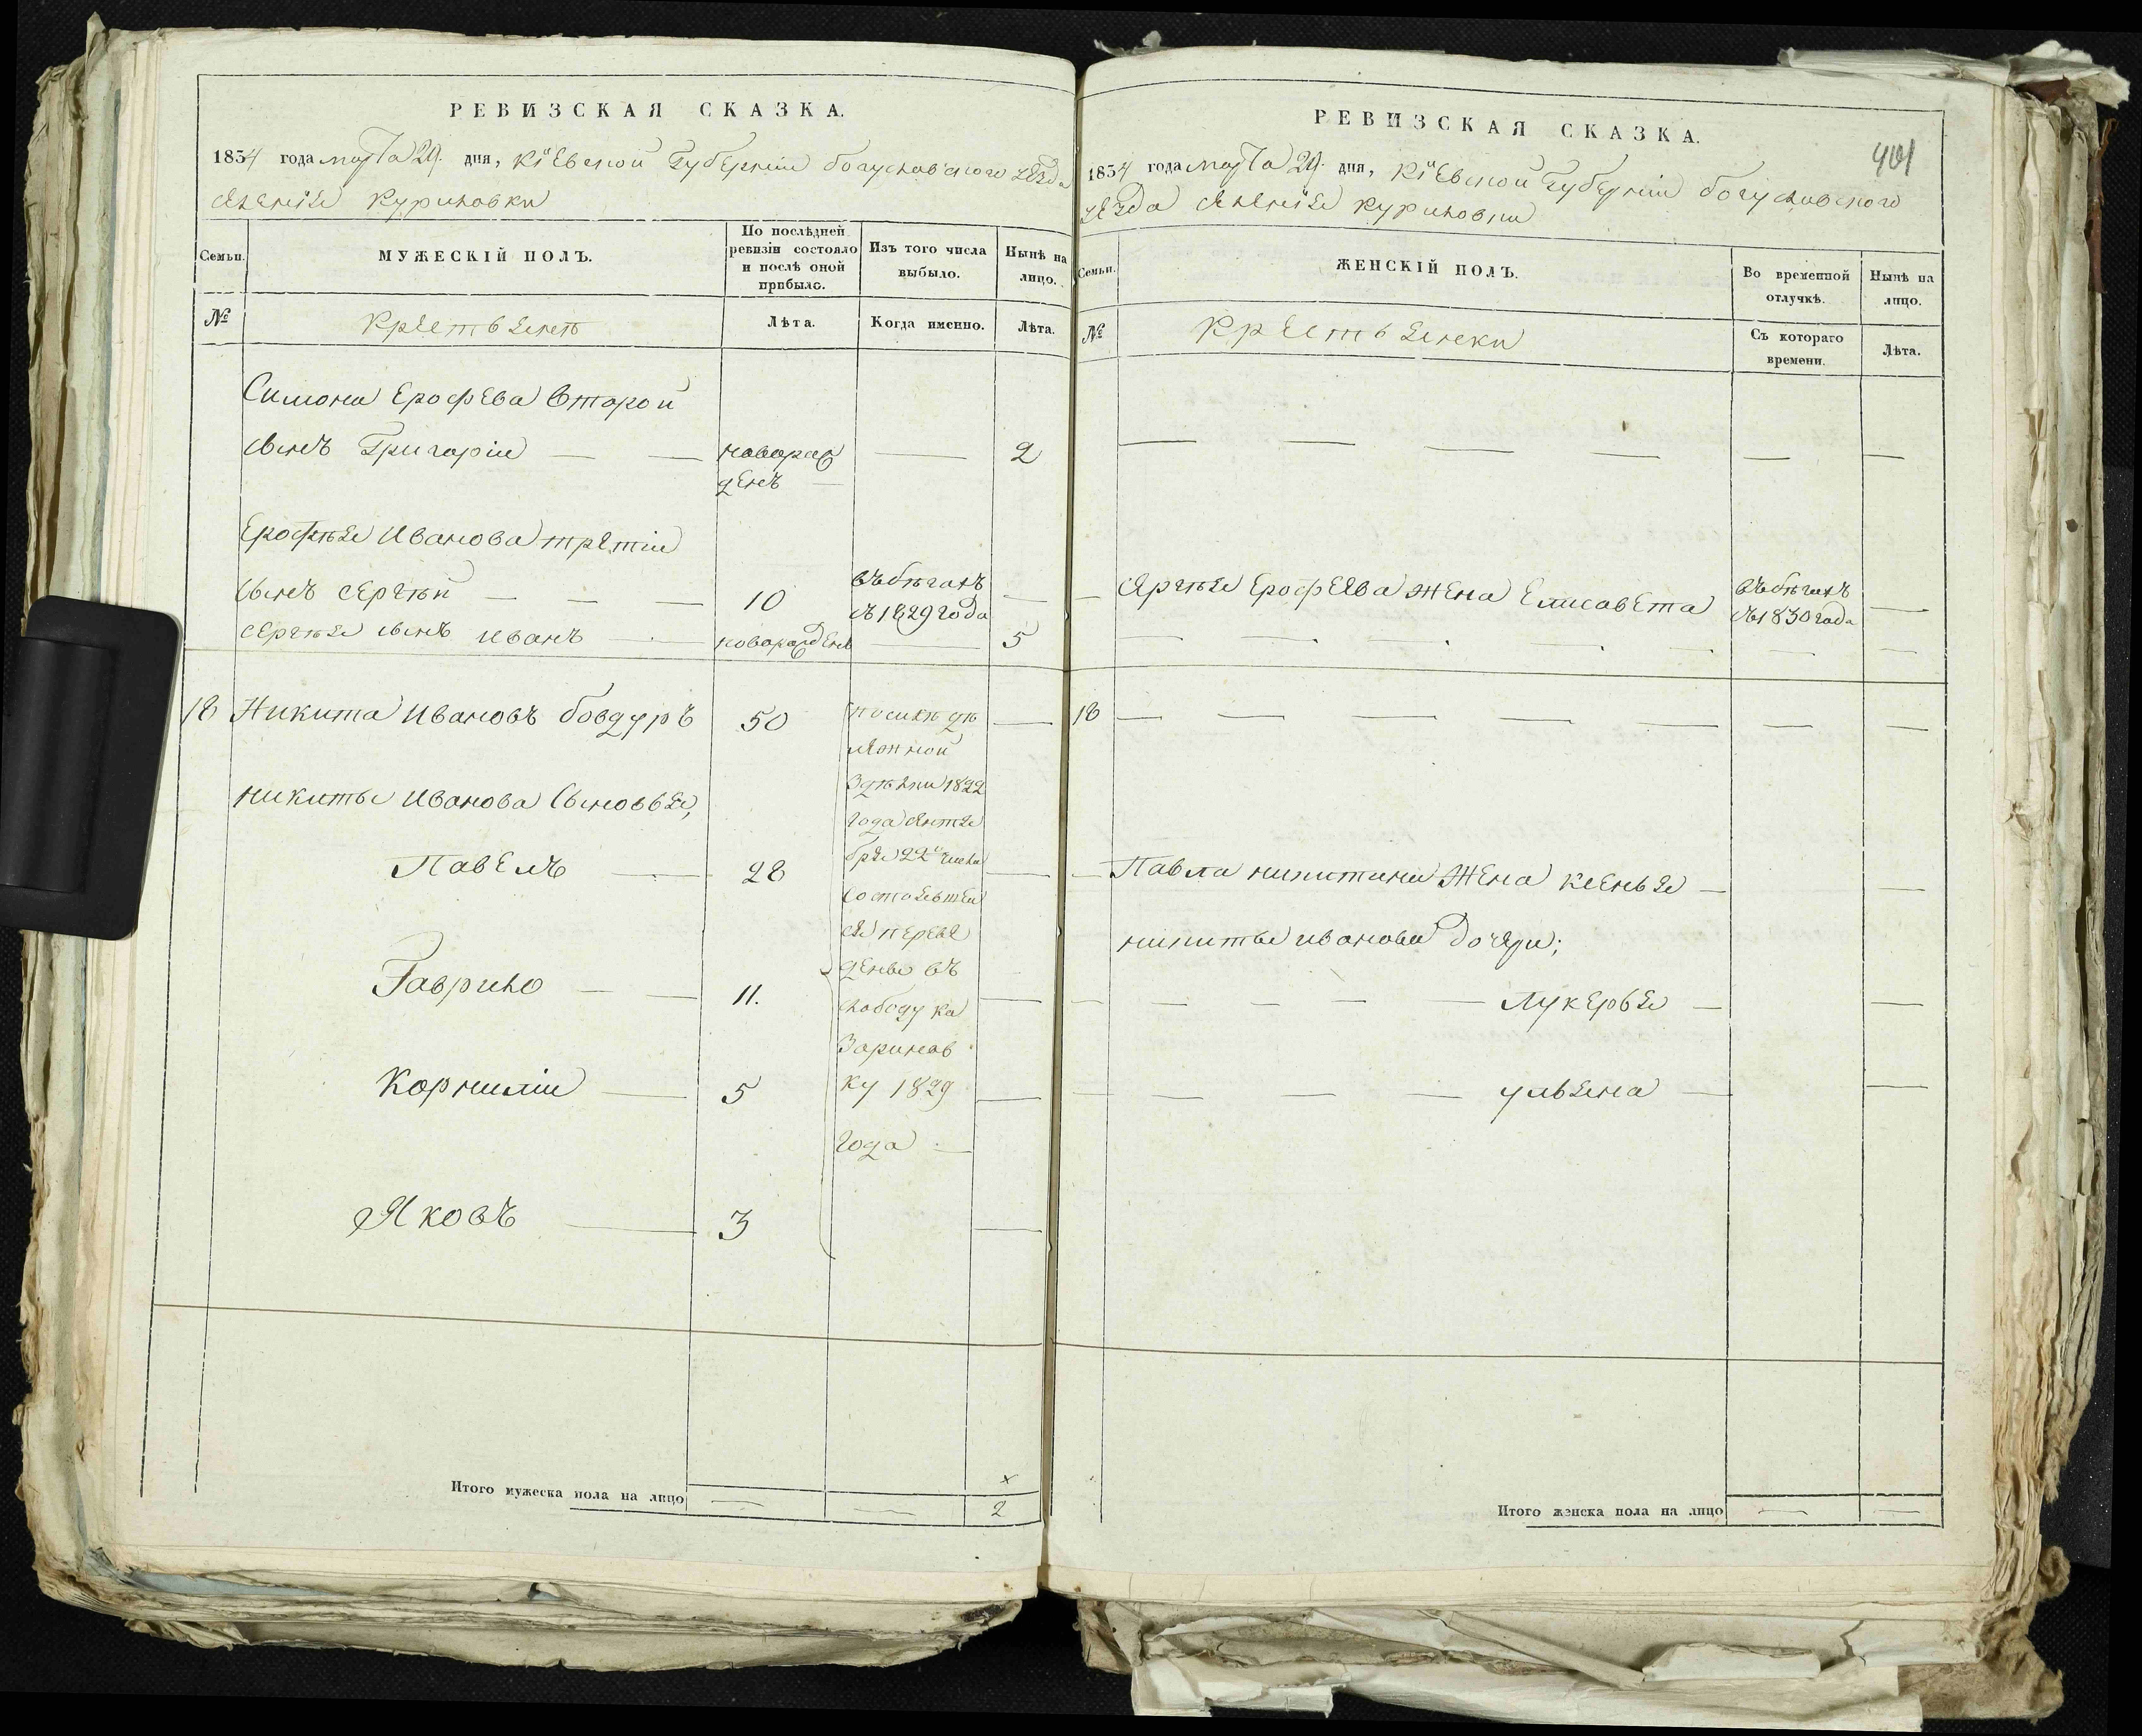 РЕВИЗСКАЯ СКАЗКА.
1834 года марта 29. дня, Кіевской губерніи богуславского уезда
селенія Куриловки
Семьи.
МУЖЕСКІЙ ПОЛЪ.
По последней
ревизіи состояло
и послѣ оной
прибыло.
Изъ того числа
выбыло.
Нынѣ на
лицо.
№
Крестьянъ
Лѣта.
Когда именно.
Лѣта.
Симона Ерофева второй
сынъ Григорій — — новорож — 2
денъ —
Ерофѣя Иванова третій
сынъ Сергѣй — — — 10 въ бѣгахъ —
съ 1829 года
Сергѣя сынъ Иванъ — новорожденъ — 5
18 Никита Ивановъ бовдуръ 50 —
Никиты Иванова сыновья,
Павелъ — 28 —
Гаврило — — 11. —
Корнилій — 5 —
Яковъ — 3 —
1822
года сентя
бря 22 числа
состоявшей
ся переве
дены въ
слободу Ка
заринов
ку 1829
года —
Итого мужеска пола на лицо — — 2
РЕВИЗСКАЯ СКАЗКА.
401
1834 года марта 29. дня, Кіевской губерніи богуславского
уезда селенія Куриловки
Семьи.
ЖЕНСКІЙ ПОЛЪ.
Во временной
отлучкѣ.
Нынѣ на
лицо.
№
Крестьянки
Съ котораго
времени.
Лѣта.
— — — — — —
— Сергѣя Ерофеева жена Елисавета въ бѣгахъ —
съ 1830 года
— — — — — — —
18 — — — — — — —
— Павла никитина жена Ксенья — —
никиты иванова дочери;
— — — — — Лукерья — —
— — — — ульяна — —
Итого женска пола на лицо — —